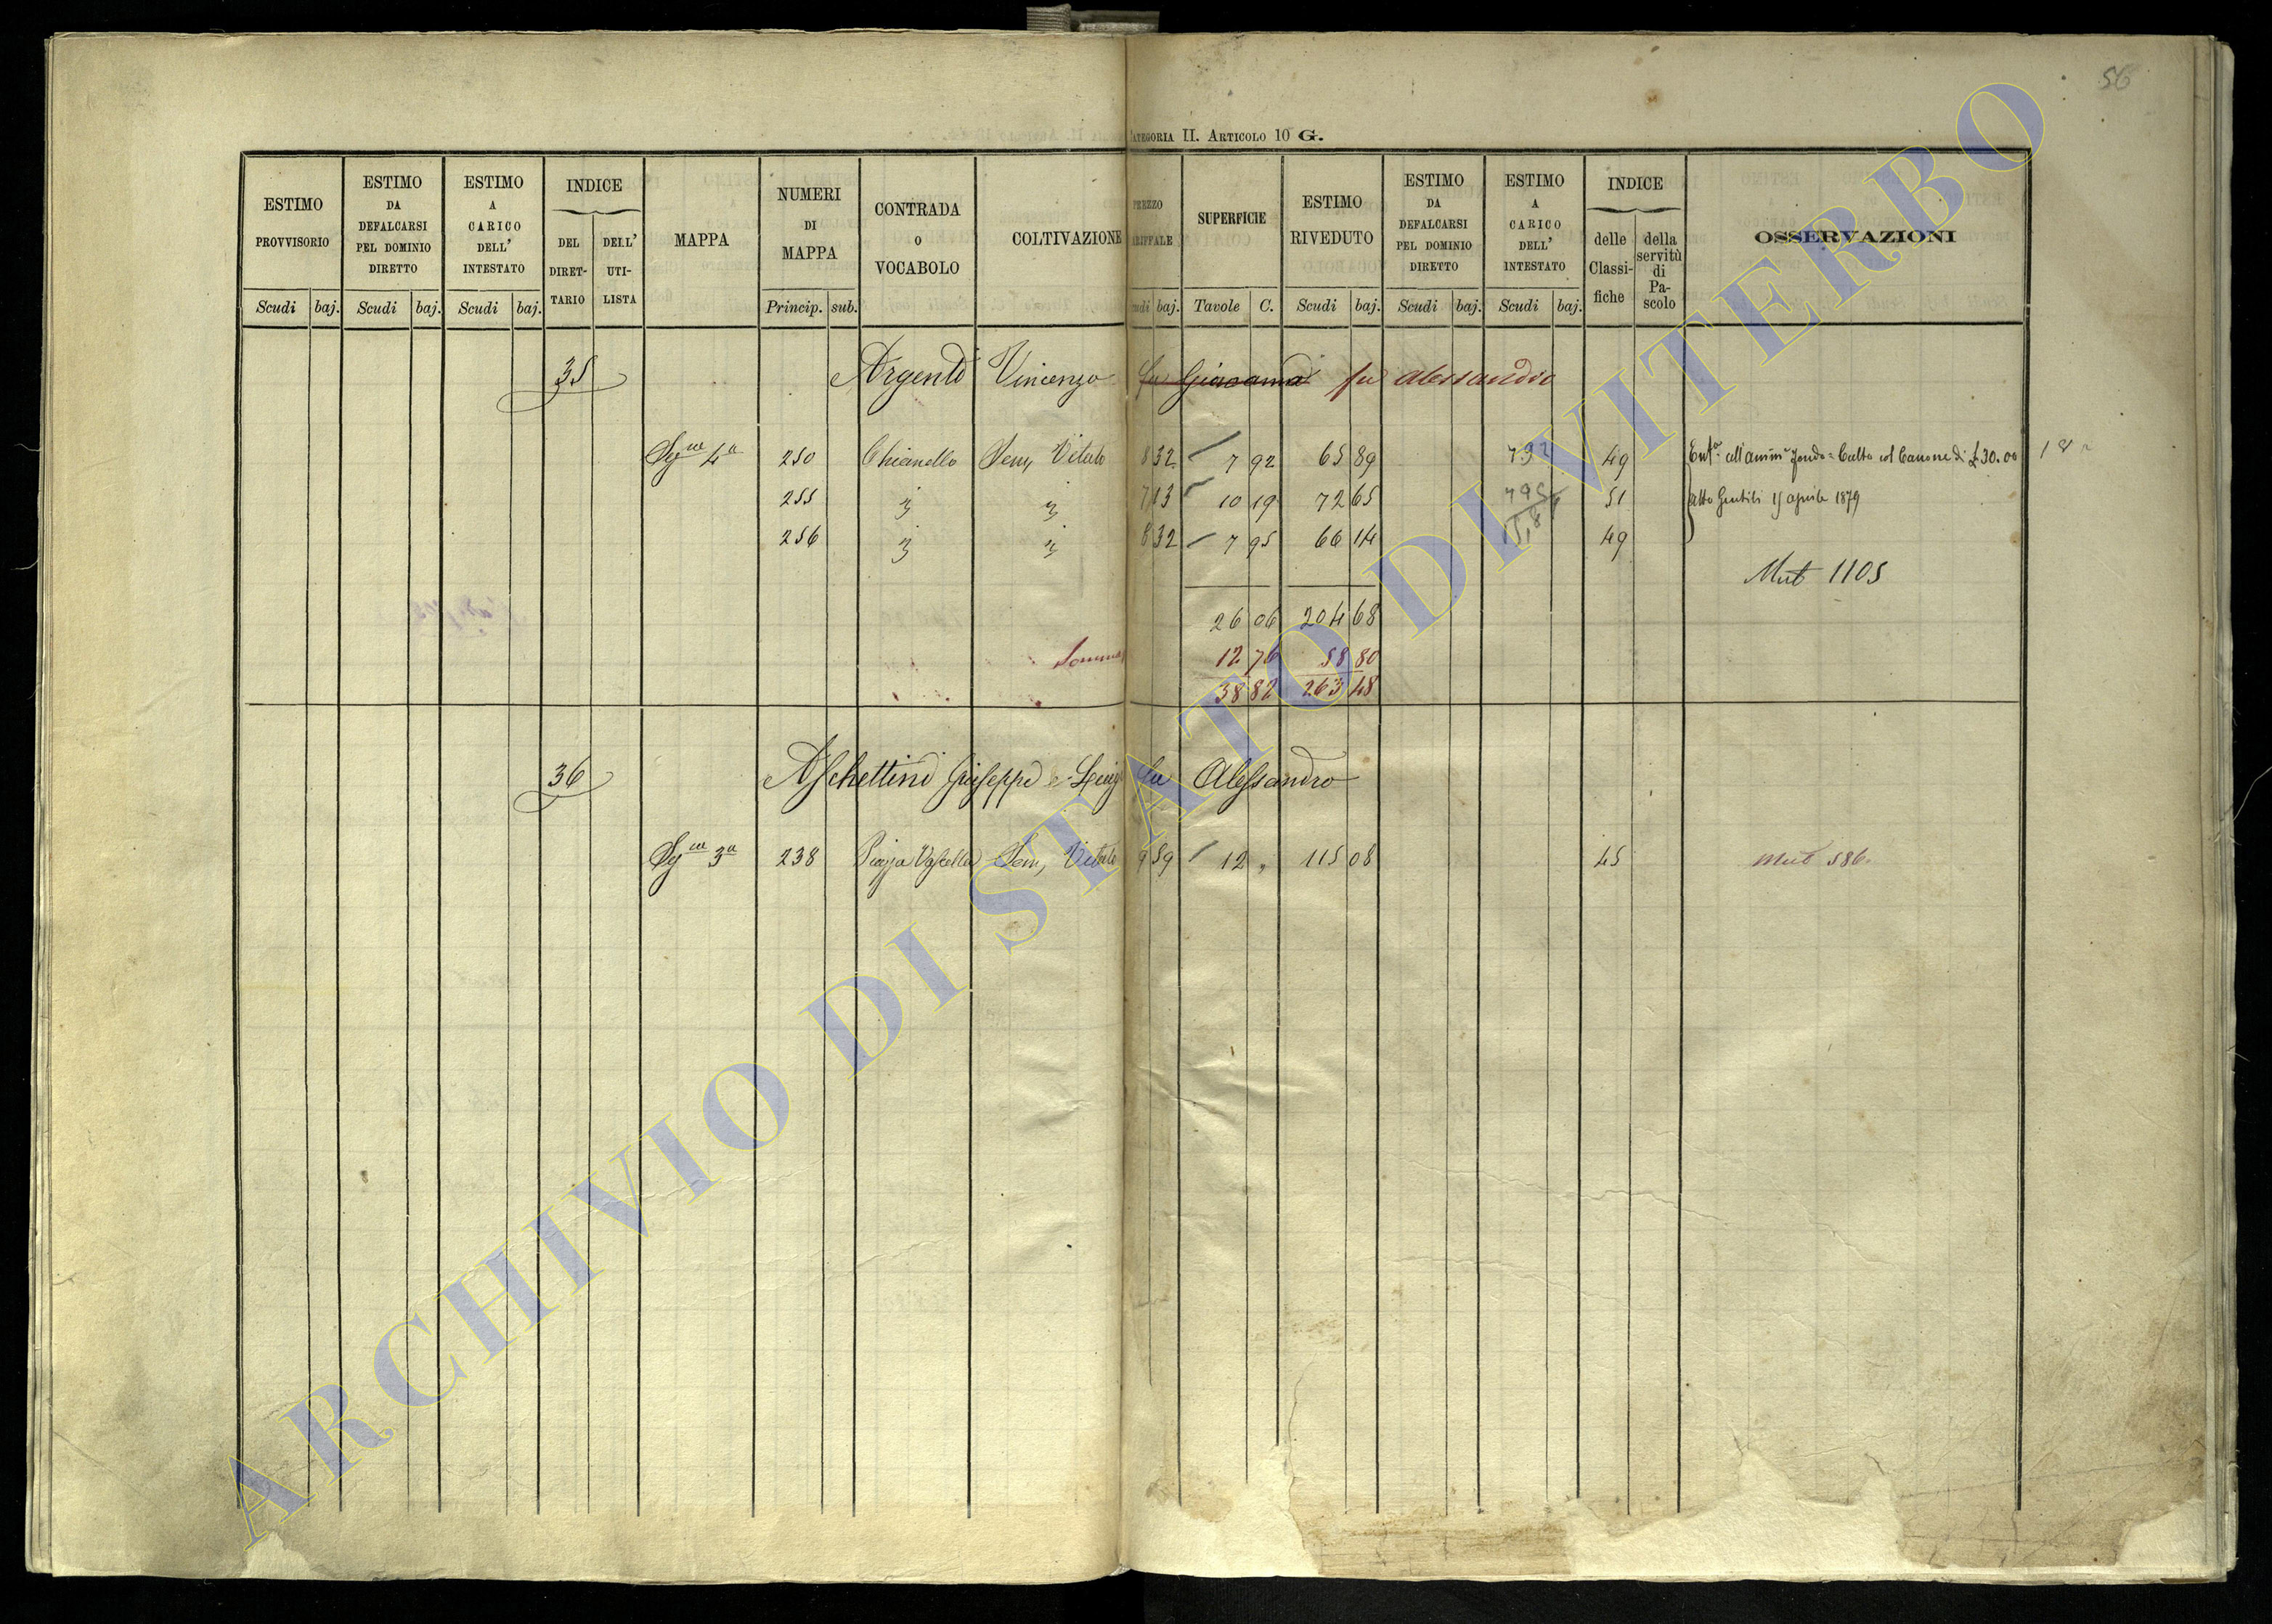 56
ATEGORIA II. ARTICOLO 10 G.
ESTIMO PROVVISORIO
ESTIMO DA DEFALCARSI PEL DOMINIO DIRETTO
ESTIMO A CARICO DELL' INTESTATO
INDICE
DEL DIRET-TARIO
DELL' UTI-LISTA
MAPPA
NUMERI DI MAPPA
CONTRADA O VOCABOLO
COLTIVAZIONE
PREZZO ARIFFALE
SUPERFICIE
ESTIMO RIVEDUTO
ESTIMO DA DEFALCARSI PEL DOMINIO DIRETTO
ESTIMO A CARICO DELL' INTESTATO
INDICE
delle Classi-fiche
della servitù di Pa-scolo
OSSERVAZIONI
Scudi baj. Scudi baj. Scudi baj. Princip. sub. udi baj. Tavole C. Scudi baj. Scudi baj. Scudi baj.
35 Argenti Vincenzo fu Giovanni fu Alessandro
Sez.ne 4a 250 Chianello Sem, Vitato 8 32 7 92 65 89 792 49 all'amm.e fondo Culto col Canone di £ 30.00
255 " " 7 13 10 19 72 65 795 51 atto Gentili 15 aprile 1879
256 " " 8 32 7 95 66 14 49
Mut 1105
26 06 204 68
Somma 12 76 58 80
38 82 263 48
36 Aschettini Giuseppe e Luigi fu Alessandro
Sez.ne 3a 238 Piazza Sem, Vitato 9 59 12 " 115 08 45 Mut 586
ARCHIVIO DI STATO DI VITERBO